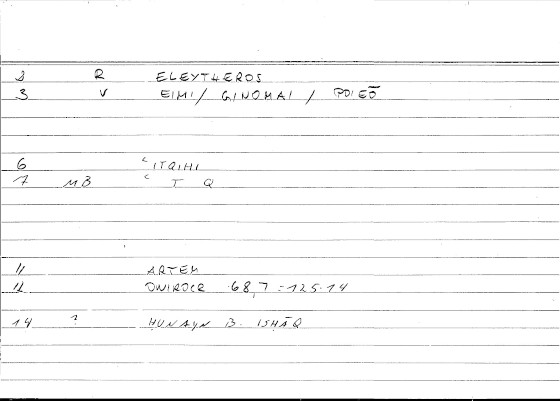 2 R ELEYTHEROS
3 V EIMI / GINOMAI / POIEŌ
6 ʿITQIHI
7 MB ʿ T Q
11 ARTEM
12 ONIROCR 68,7 = 125.14
14 ? HUNAYN B. ISHĀQ